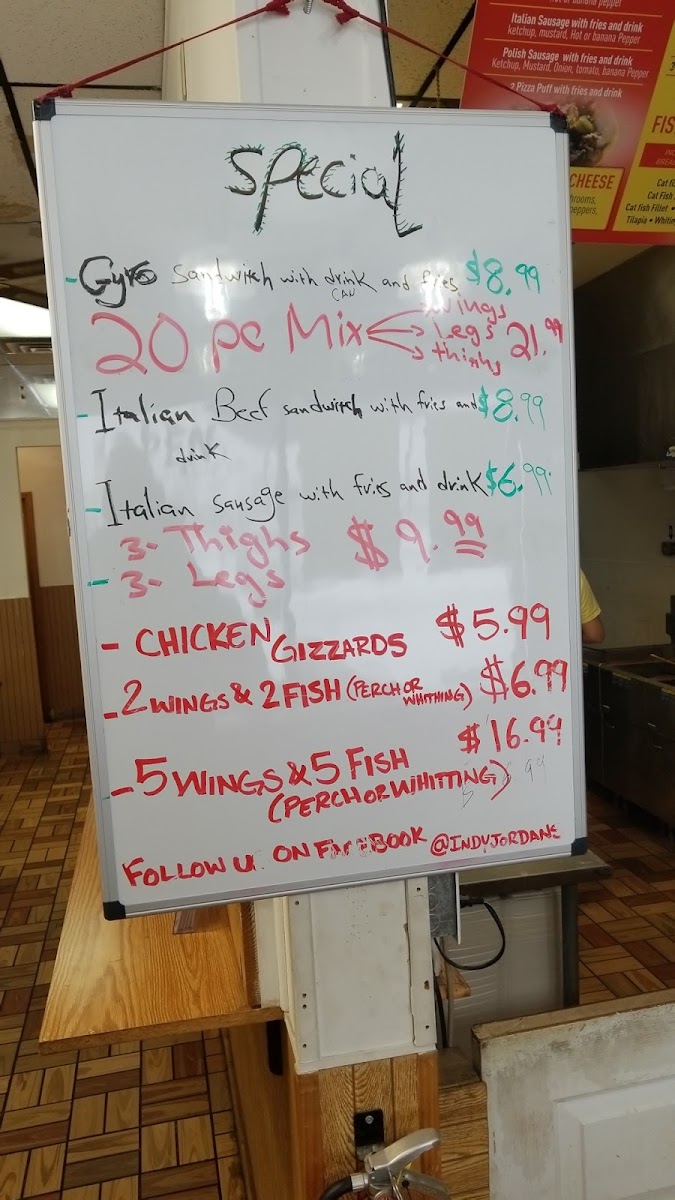 or banana pepper
Italian Sausage with fries and drink
ketchup, mustard, Hot or banana Pepper
Polish Sausage with fries and drink
Ketchup, Mustard, Onion, tomato, banana Pepper
2 Pizza Puff with fries and drink
FIS
CHEESE
hrooms,
peppers,
Cat fi
Cat Fish
Cat fish Fillet •
Tilapia • Whitin
Special
- Gyro Sandwitch with drink and fries $8.99
CAN
20 pc Mix Wings
Legs 21.99
thighs
- Italian Beef sandwitch with fries and $8.99
drink
- Italian sausage with fries and drink $6.99
3- Thighs $9.99
- 3- Legs
- CHICKEN GIZZARDS $5.99
- 2 WINGS & 2 FISH (PERCH OR WHITHING) $6.99
$16.99
- 5 WINGS & 5 FISH
(PERCH OR WHITTING)
FOLLOW U ON FACEBOOK @INDYJORDANE